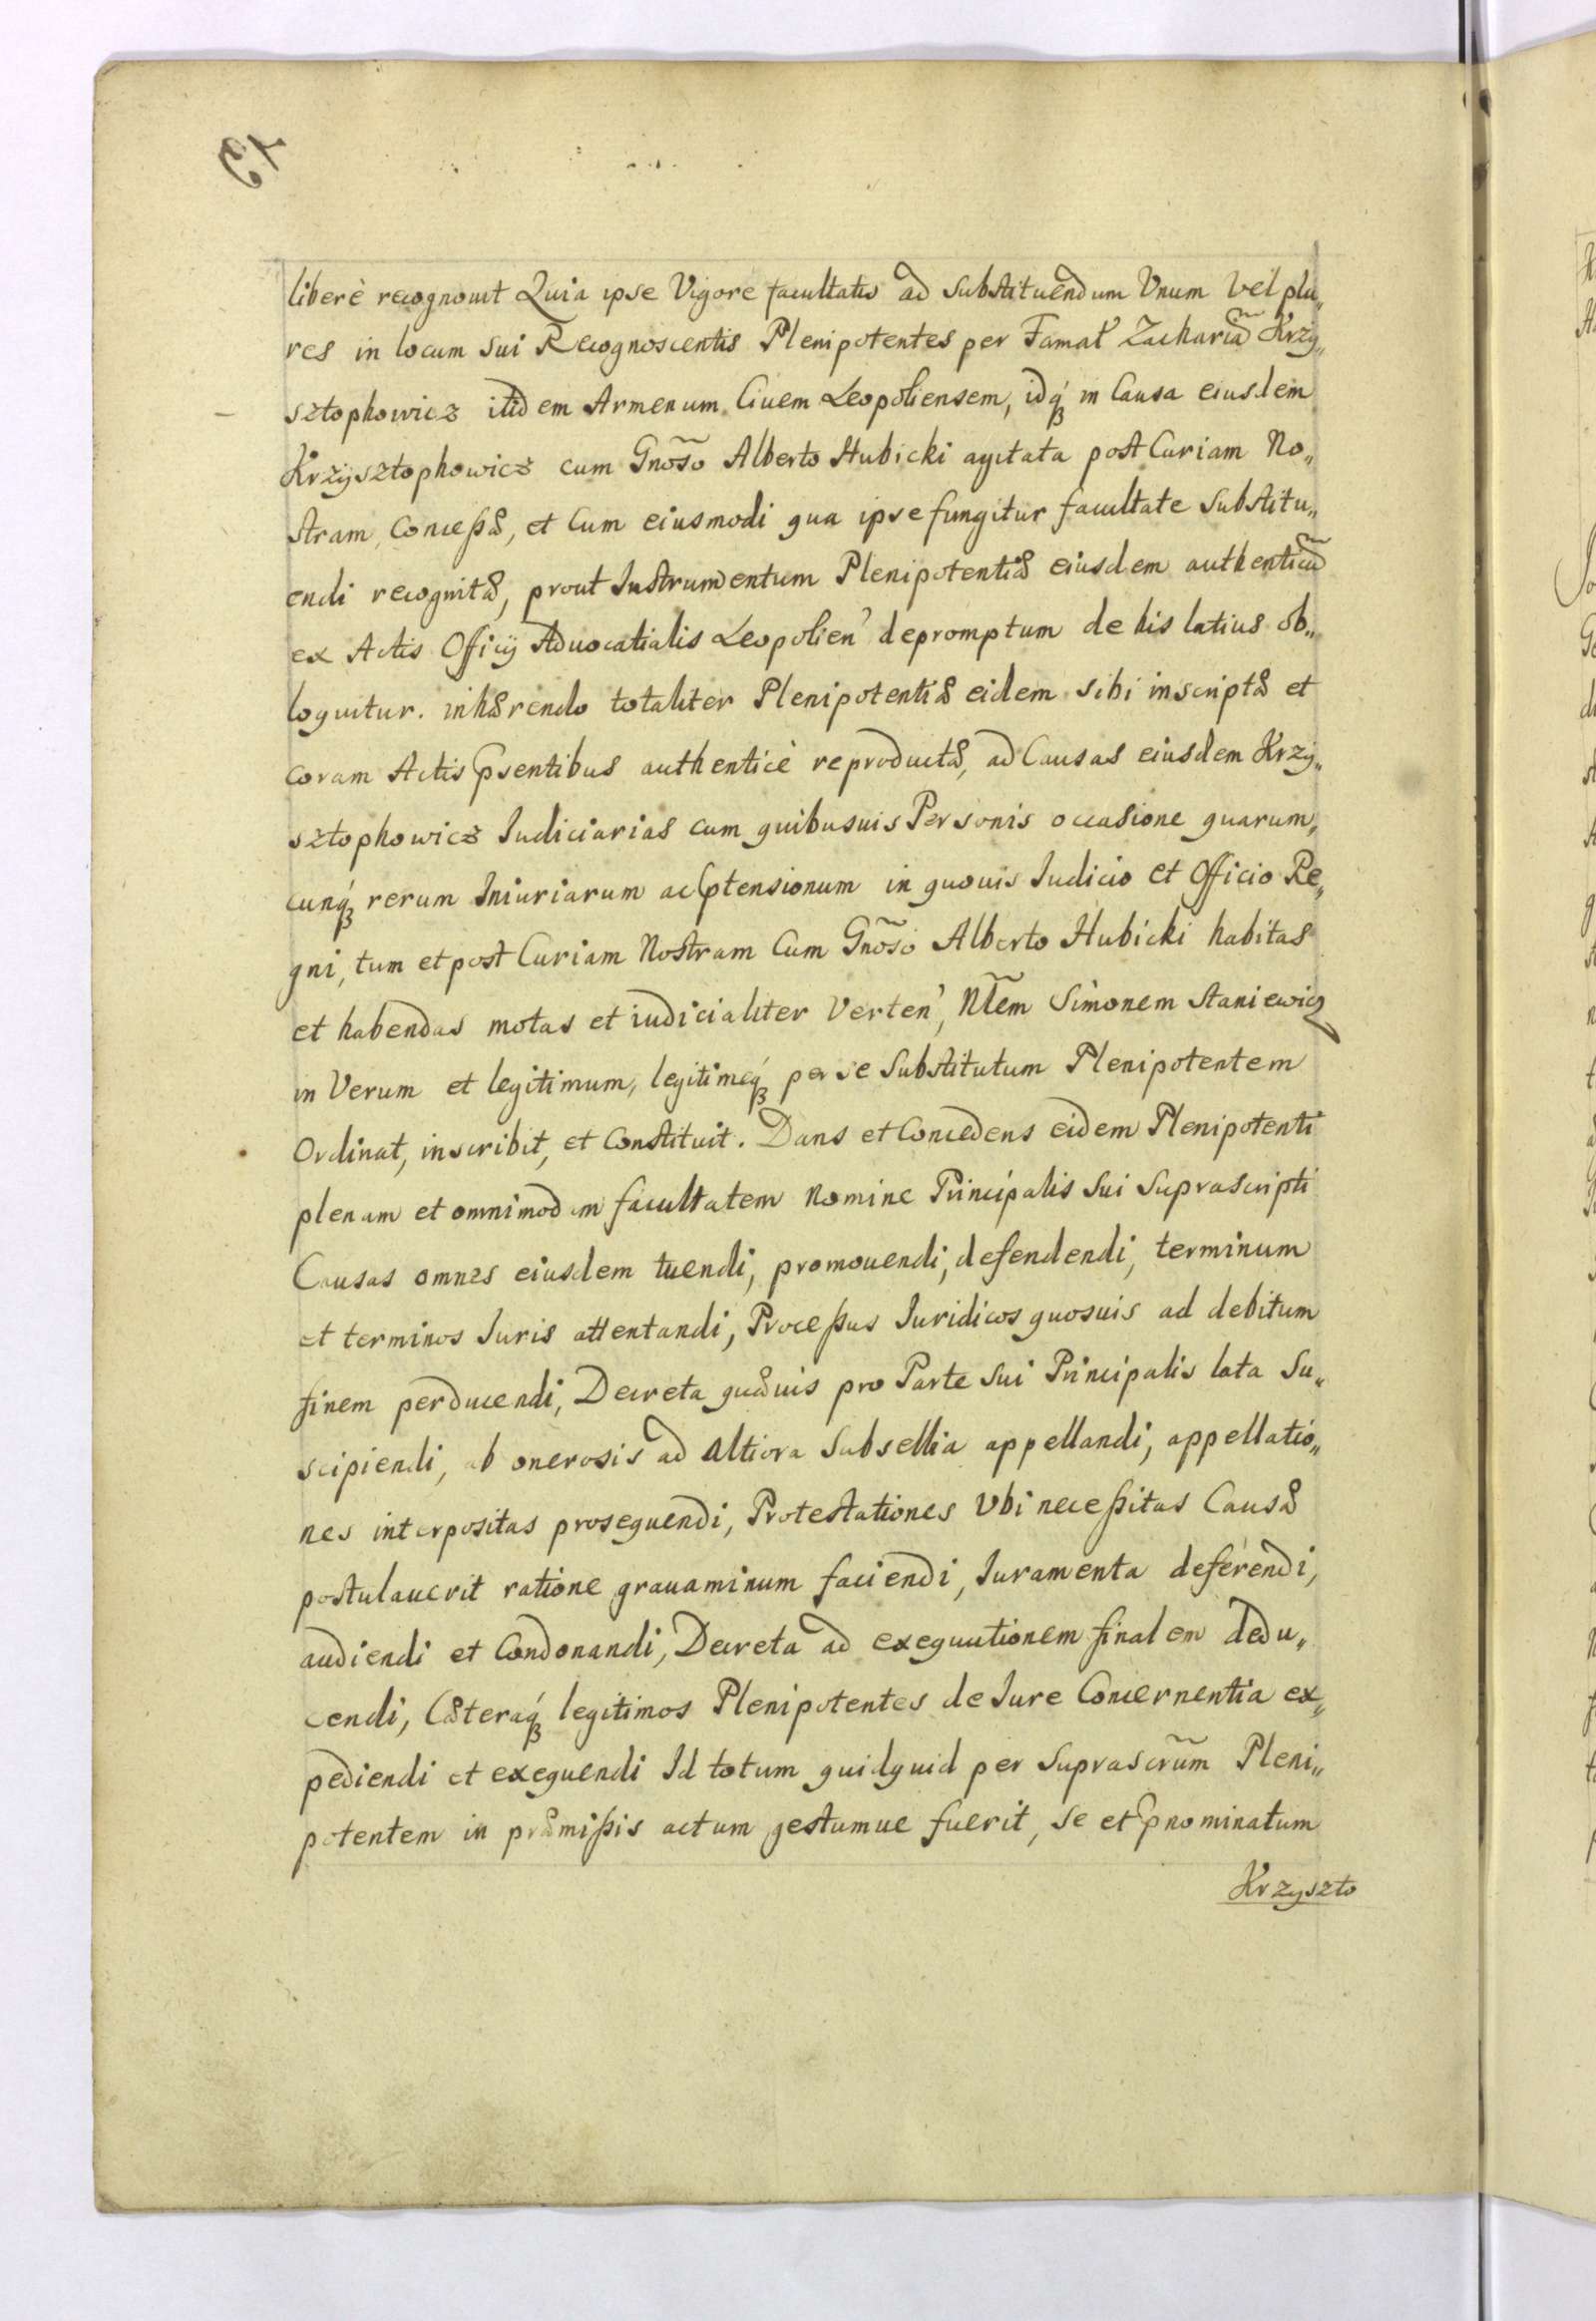 19
liberè recognouit Quia ipse Vigore facultatis ad Substituendum Vnum Vel plu„
res in locum Sui Recognoscentis Plenipotentes per Famat̃ Zachariã Krzy„
sztophowicz itidem Armenum Ciuem Leopoliensem, idq́ꝫ in Causa eiusdem
Krzysztophowicz cum Gnõso Alberto Hubicki agitata post Curiam No„
stram, Conceßæ, et Cum eiusmodi qua ipse fungitur facultate Substitu„
endi recognitæ, prout Instrumentum Plenipotentiæ eiusdem authenticũ
ex Actis Officij Aduocatialis Leopolien' depromptum de his latius ob„
loquitur. inhærendo totaliter Plenipotentiæ eidem sibi inscriptæ et
coram Actis p̃sentibus authenticè reproductæ, ad Causas eiusdem Krzy„
sztophowicz Iudiciarias cum quibusuis Personis occasione quarum„
cunq́ꝫ rerum Iniuriarum ac p̃tensionum in quouis Iudicio et Officio Re„
gni, tum et post Curiam Nostram Cum Gnõso Alberto Hubicki habitas
et habendas motas et iudicialiter Verten', Nlẽm Simonem Staniewicz
in Verum et legitimum, legitimeq́ꝫ per se Substitutum Plenipotentem
Ordinat, inscribit, et Constituit. Dans et Concedens eidem Plenipotenti
plenam et omnimodam facultatem Nomine Principalis Sui Suprascripti
Causas omnes eiusdem tuendi, promouendi, defendendi, terminum
et terminos Iuris attentandi, Proceßus Iuridicos quosuis ad debitum
finem perducendi, Decreta quæuis pro Parte Sui Principalis lata Su„
scipiendi, ab onerosis ad Altiora Subsellia appellandi, appellatio„
nes interpositas prosequendi, Protestationes Vbi neceßitas Causæ
postulauerit ratione grauaminum faciendi, Iuramenta deferendi,
audiendi et Condonandi, Decreta ad exequutionem finalem dedu„
cendi, Cæteraq́ꝫ legitimos Plenipotentes de Iure Concernentia ex„
pediendi et exequendi Id totum quidquid per Suprascrũm Pleni„
potentem in præmißis actum gestumue fuerit, Se et p̃nominatum
Krzyszto